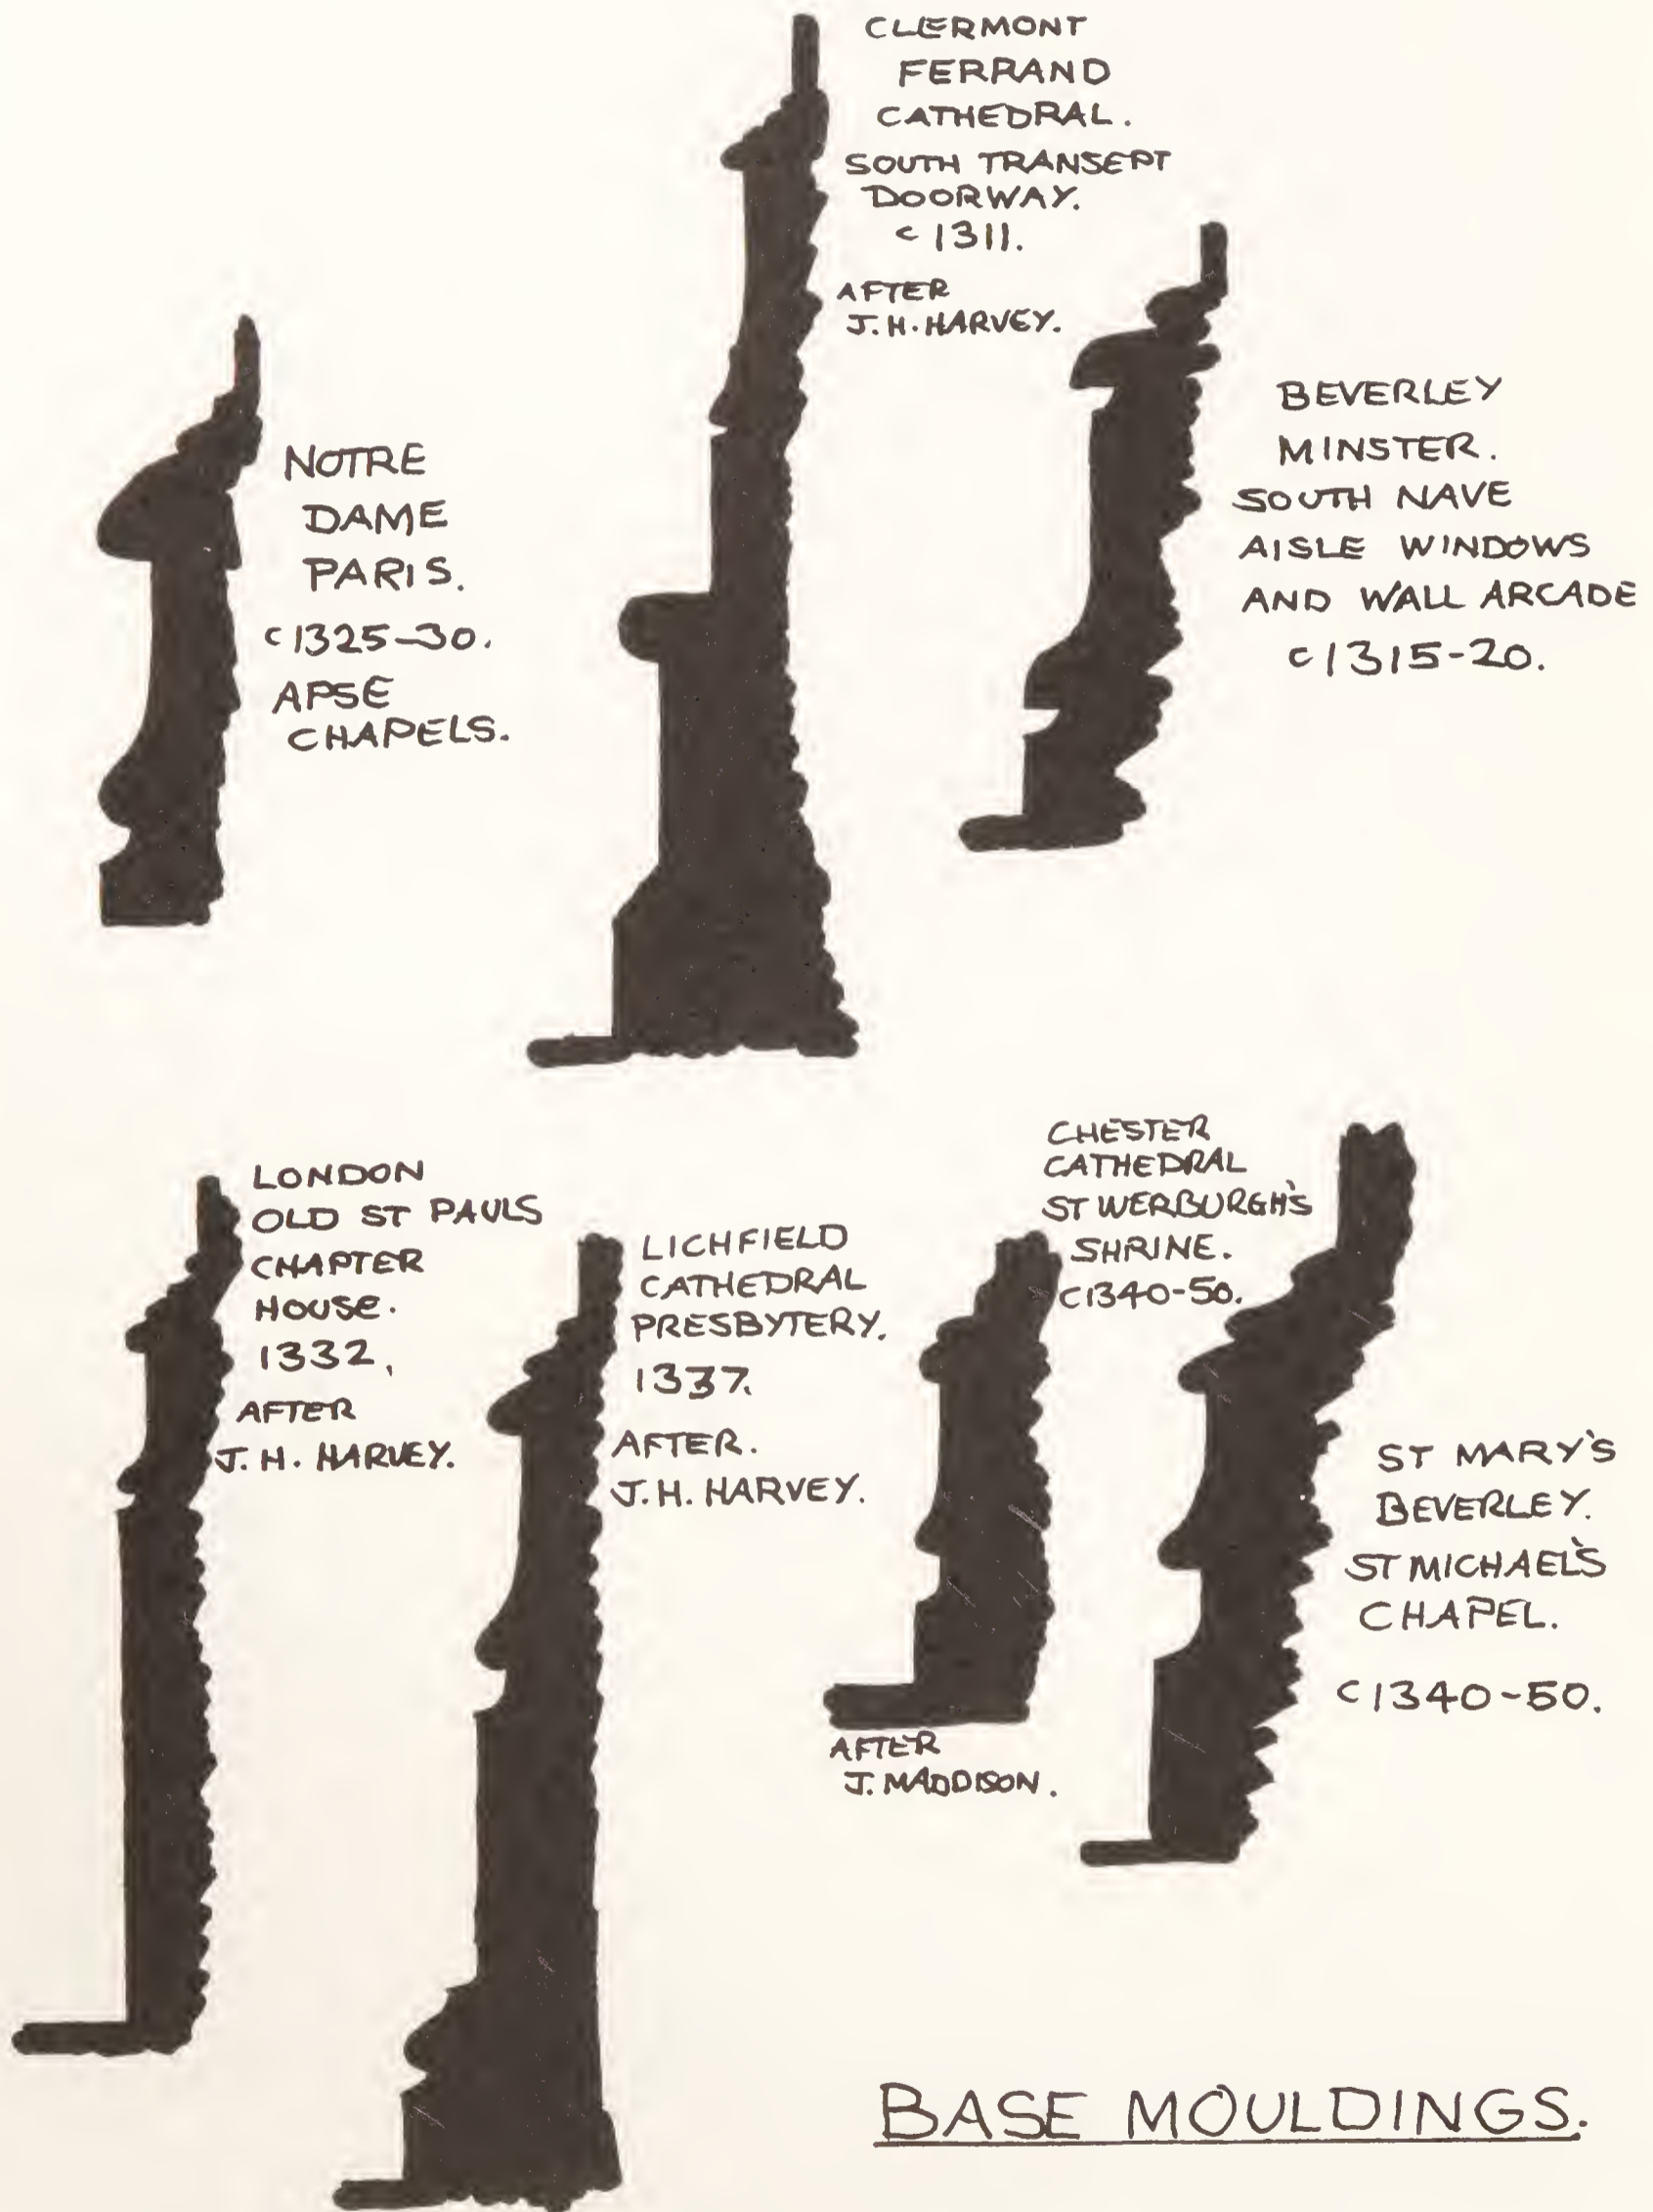 CLERMONT
FERRAND
CATHEDRAL.
SOUTH TRANSEPT
DOORWAY.
c 1311.
AFTER
J. H. HARVEY.
NOTRE
DAME
PARIS.
c 1325-30.
APSE
CHAPELS.
BEVERLEY
MINSTER.
SOUTH NAVE
AISLE WINDOWS
AND WALL ARCADE
c 1315-20.
LONDON
OLD ST PAULS
CHAPTER
HOUSE.
1332,
AFTER
J. H. HARVEY.
LICHFIELD
CATHEDRAL
PRESBYTERY.
1337.
AFTER.
J. H. HARVEY.
CHESTER
CATHEDRAL
ST WERBURGH'S
SHRINE.
C1340-50.
AFTER
J. MADDISON.
ST MARY'S
BEVERLEY.
ST MICHAEL'S
CHAPEL.
c 1340-50.
BASE MOULDINGS.